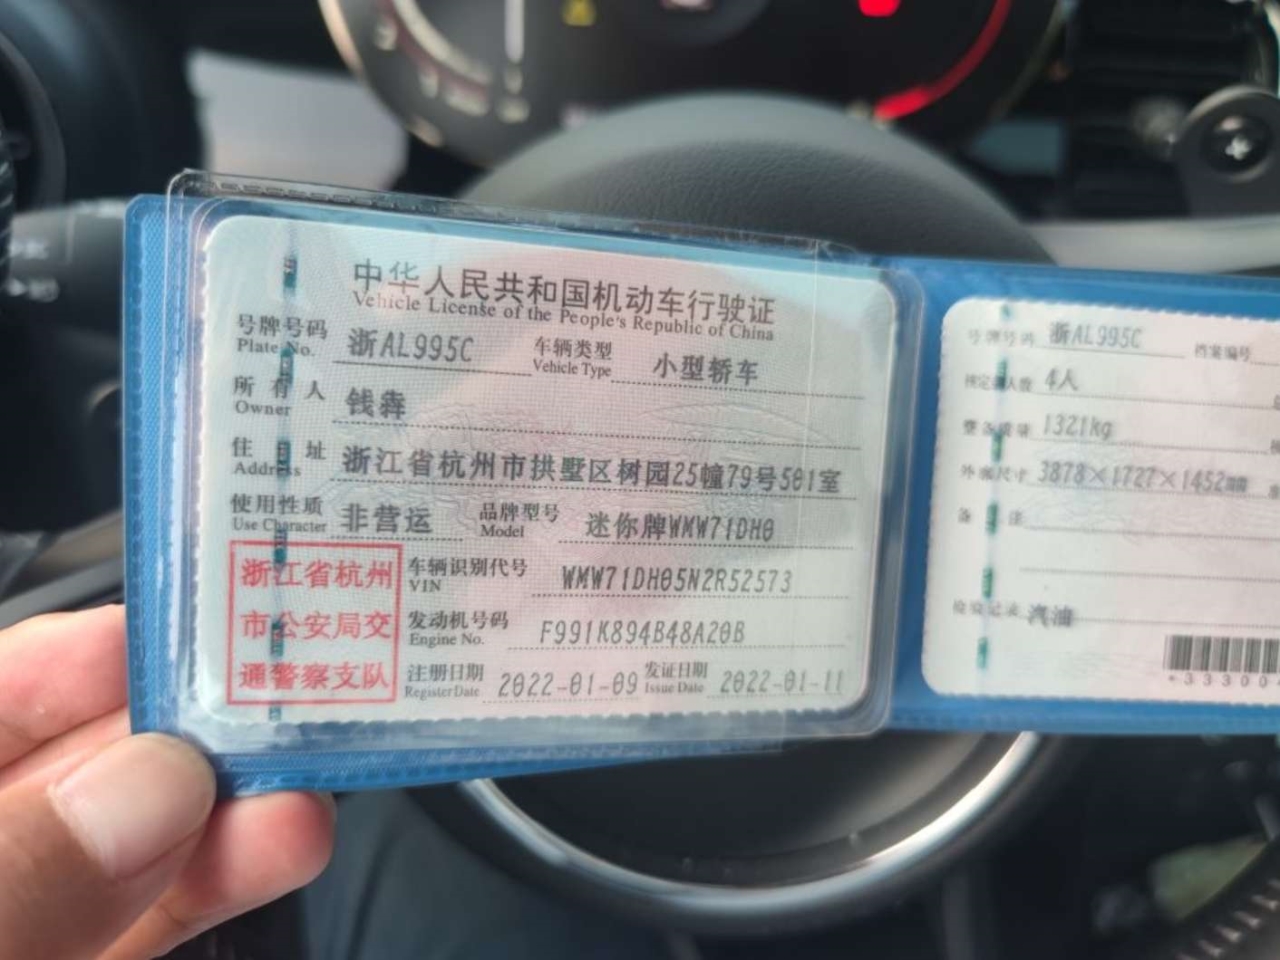 中华人民共和国机动车行驶证
Vehicle License of the People's Republic of China
号牌号码 浙AL995C 车辆类型 小型轿车
Plate No. Vehicle Type
所有人 钱犇
Owner
住址 浙江省杭州市拱墅区树园25幢79号501室
Address
使用性质 非营运 品牌型号 迷你牌WMW71DH0
Use Character Model
浙江省杭州
市公安局交
通警察支队
车辆识别代号 WMW71DH05N2R52573
VIN
发动机号码 F991K894B48A20B
Engine No.
注册日期 2022-01-09 发证日期 2022-01-11
Register Date Issue Date
号牌号码 浙AL995C 档案编号
核定载人数 4人
整备质量 1321kg
外廓尺寸 3878×1727×1452mm
备注
检验记录 汽油
*33300